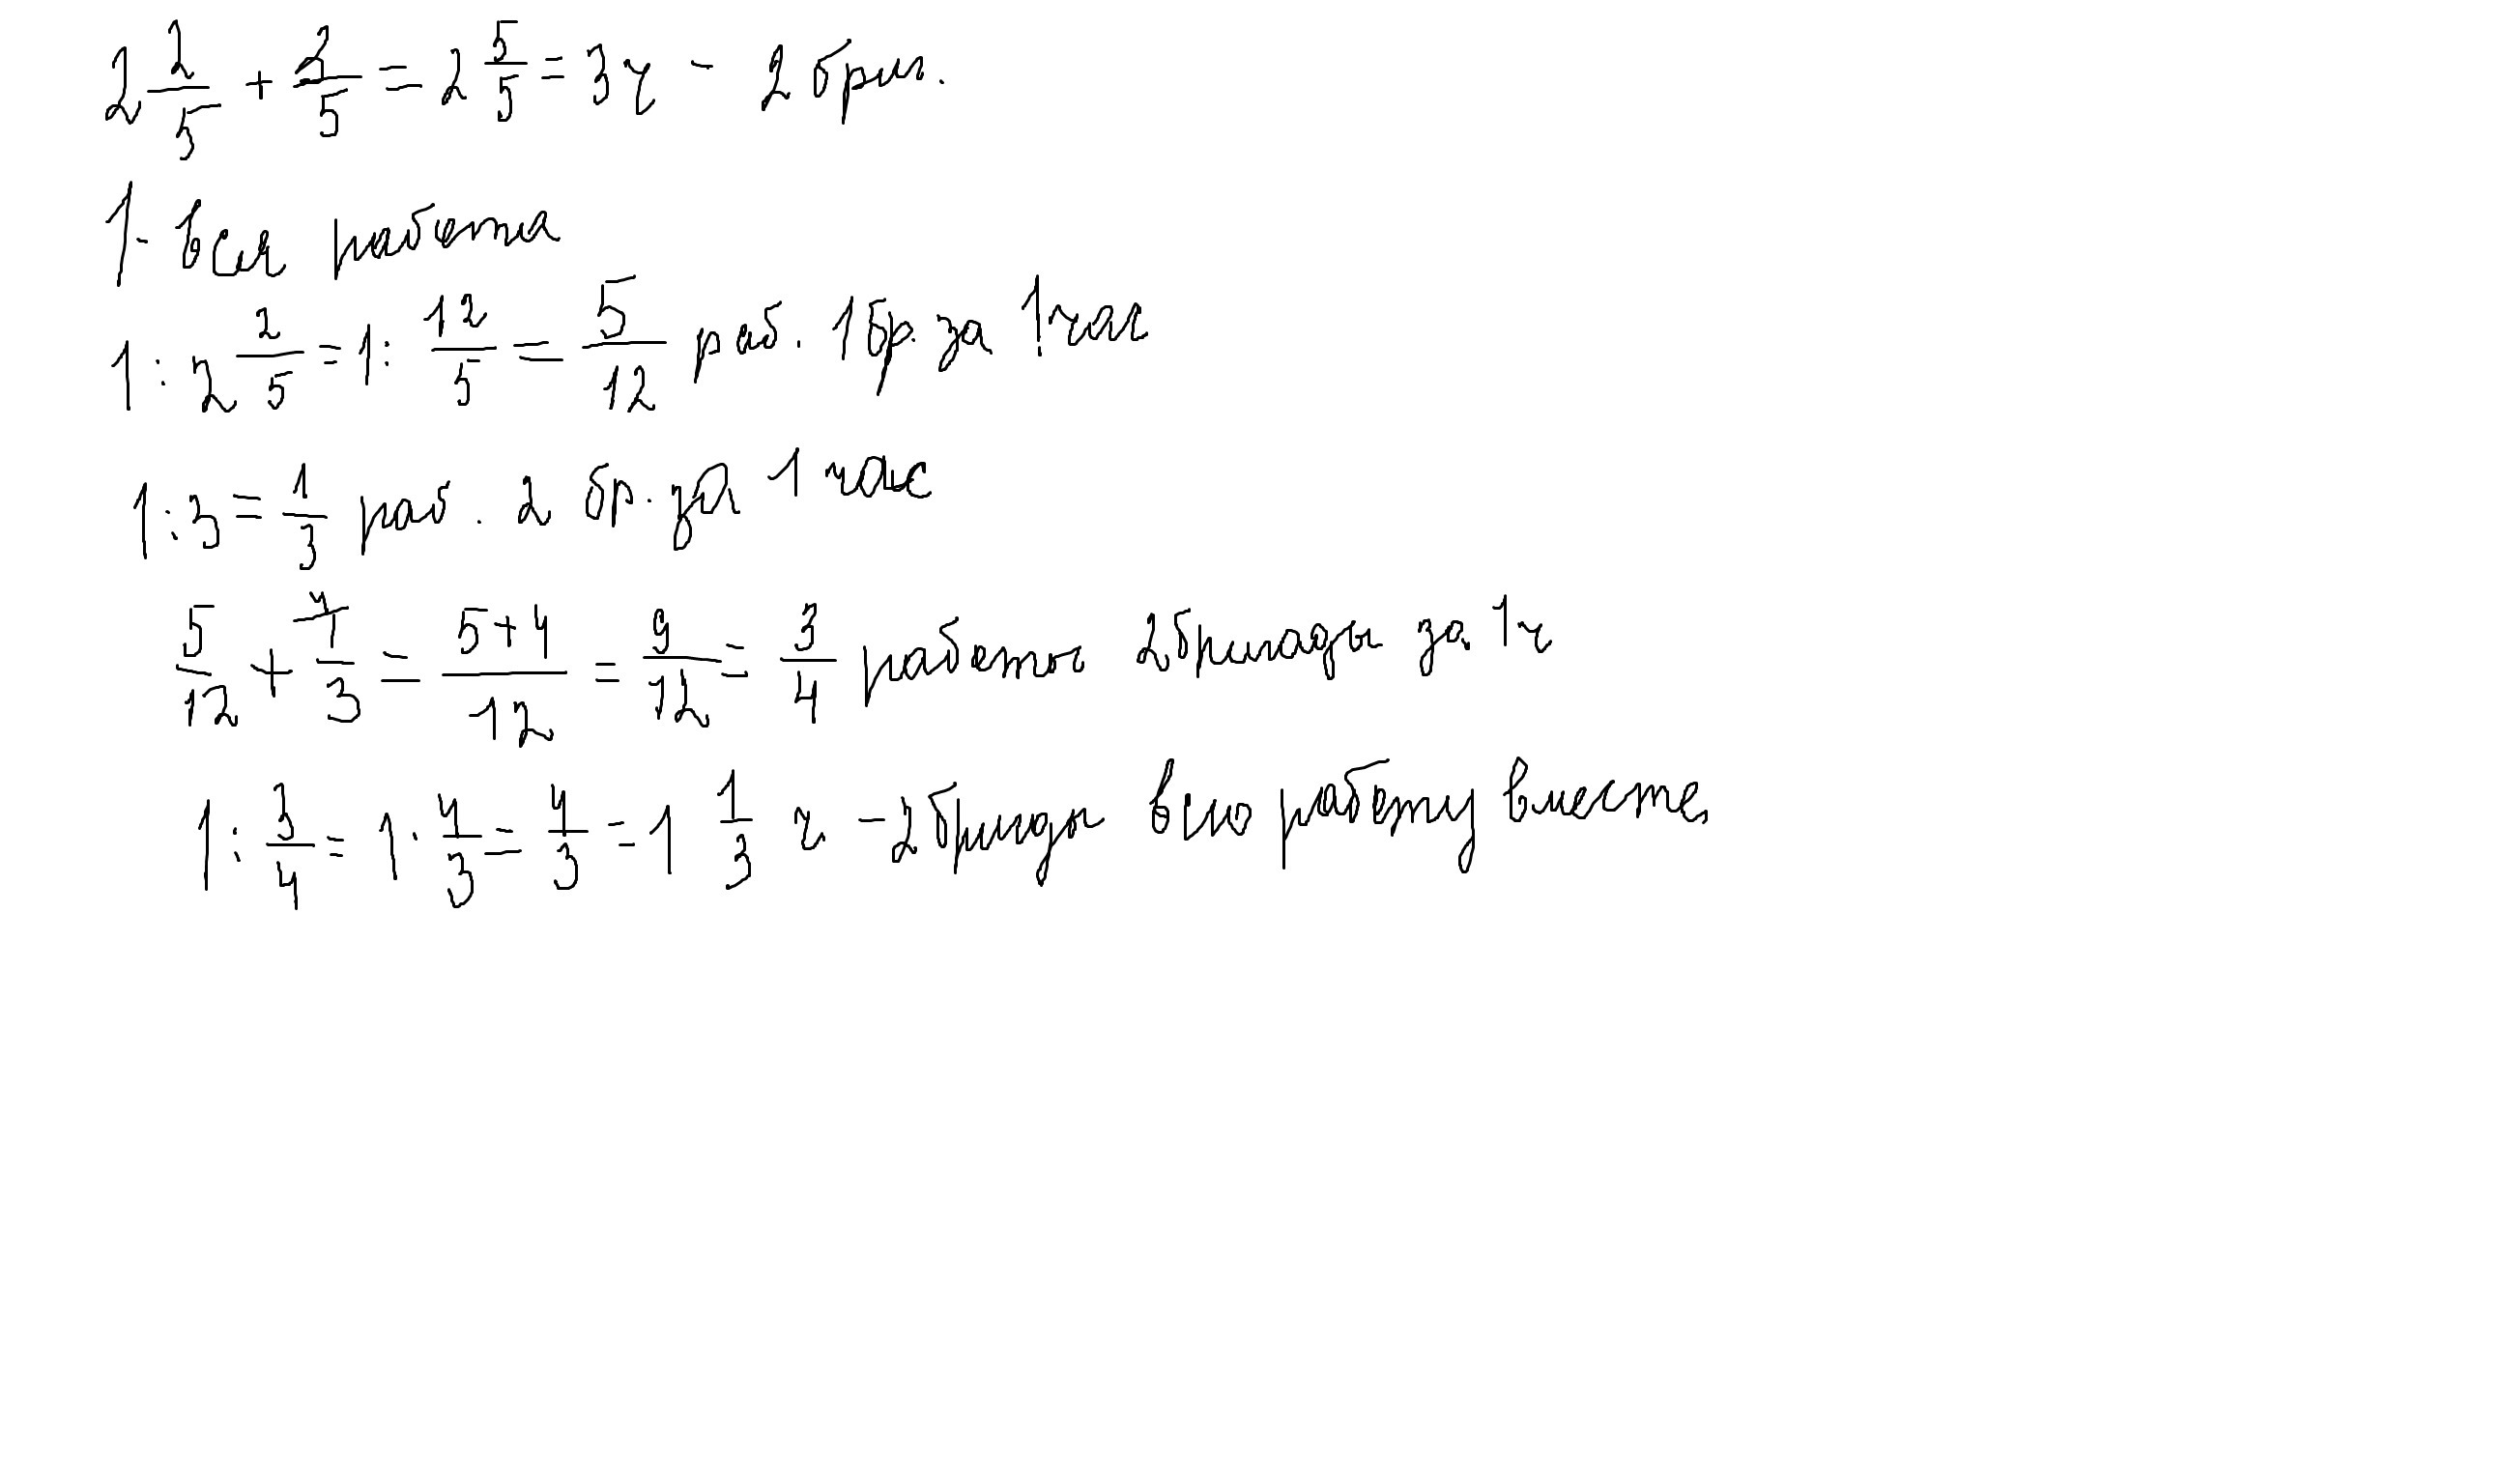 2 2/5 + 3/5 = 2 5/5 = 3ч - 2 бриг.
1 - вся работа
1 : 2 2/5 = 1 : 12/5 = 5/12 раб. 1 бр. за 1 час
1 : 3 = 1/3 раб. 2 бр. за 1 час
5/12 + 4/ 1/3 = 5+4/12 = 9/12 = 3/4 работы 2 бригады за 1ч
1 : 3/4 = 1 · 4/3 = 4/3 = 1 1/3 ч - 2 бригады всю работу вместе